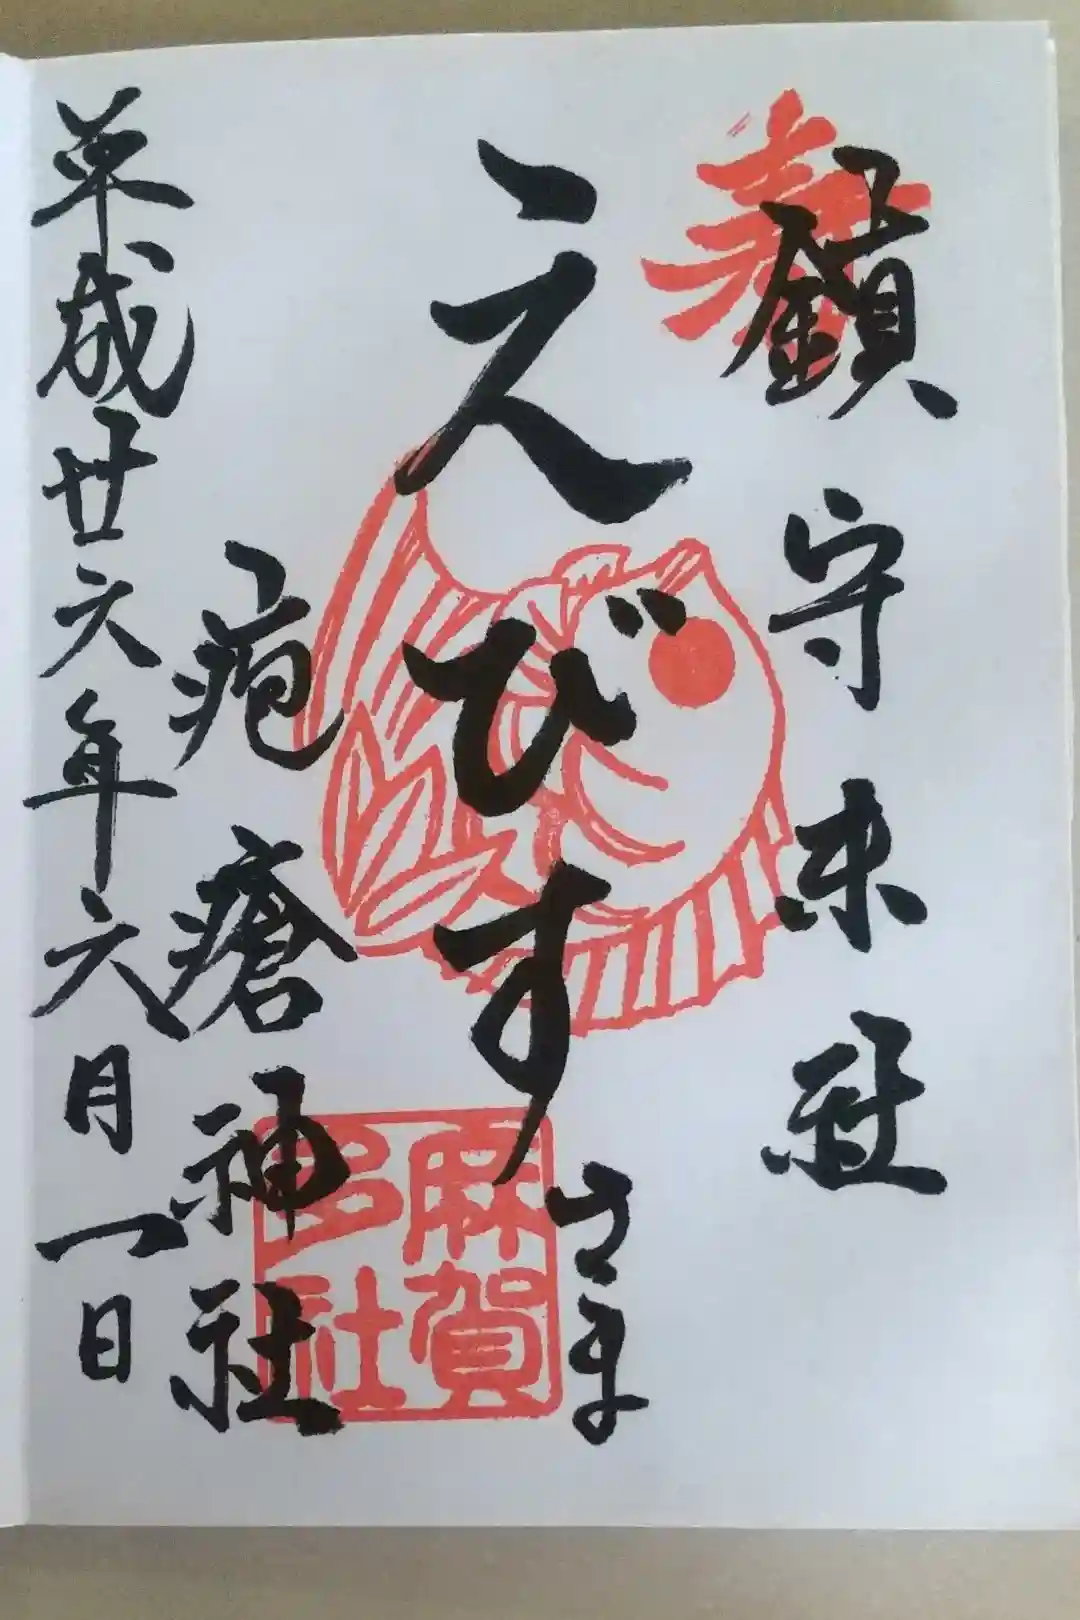 奉
鎮守末社
えびす
さま
疱瘡神社
平成廿六年六月一日
麻賀
多社